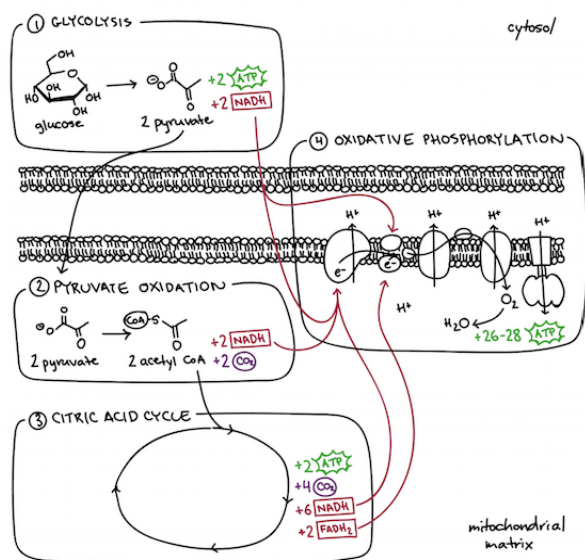 ① GLYCOLYSIS
cytosol
OH
O
HO
OH
OH
OH
glucose
⊖O
O
O
2 pyruvate
+2 ATP
+2 NADH
④ OXIDATIVE PHOSPHORYLATION
H+
H+
H+
H+
e-
e-
H+
O₂
H₂O
+26-28 ATP
② PYRUVATE OXIDATION
⊖O
O
O
2 pyruvate
CoA-S
O
2 acetyl CoA
+2 NADH
+2 CO₂
③ CITRIC ACID CYCLE
+2 ATP
+4 CO₂
+6 NADH
+2 FADH₂
mitochondrial
matrix